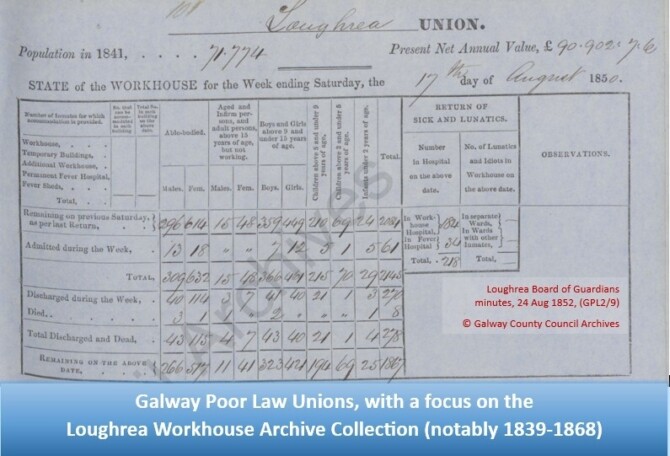 Loughrea UNION.
Population in 1841, . . . . 71.774 Present Net Annual Value, £ 90.902.7.6
STATE of the WORKHOUSE for the Week ending Saturday, the 17th day of August 1850.
Number of Inmates for which accommodation is provided.
Workhouse,
Temporary Buildings,
Additional Workhouse,
Permanent Fever Hospital,
Fever Sheds,
Total,
Able-bodied.
Males. Fem.
Aged and Infirm persons, and adult persons, above 15 years of age, but not working.
Males. Fem.
Boys and Girls above 9 and under 15 years of age.
Boys. Girls.
Infants under 2 years of age.
Total.
RETURN OF SICK AND LUNATICS.
Number in Hospital on the above date.
No. of Lunatics and Idiots in Workhouse on the above date.
OBSERVATIONS.
Remaining on previous Saturday, as per last Return,
296 614 15 48 359 449 210 69 24 2084
Admitted during the Week,
13 18 " " 7 12 5 1 5 61
TOTAL,
309 632 15 48 366 461 215 70 29 2145
Discharged during the Week,
Died,
Total Discharged and Dead,
43 115 4 7 43 40 21 1 4 278
REMAINING ON THE ABOVE DATE,
266 517 11 41 323 421 194 69 25 1867
In Workhouse Hospital, 184
In Fever Hospital 34
Total, 218
In separate Wards
In Wards with other Inmates,
Total,
Archives
Loughrea Board of Guardians
minutes, 24 Aug 1852, (GPL2/9)
© Galway County Council Archives
Galway Poor Law Unions, with a focus on the
Loughrea Workhouse Archive Collection (notably 1839-1868)